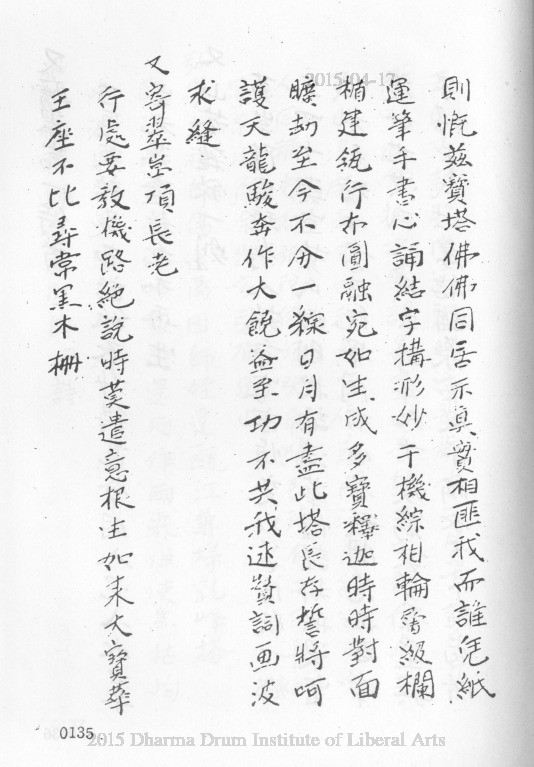 2015-04-17
則慨茲寶塔佛佛同居示真實相匪我而誰凭紙
運筆手書心誦結字搆形妙于機綜相輪層級欄
楯建瓴行布圓融宛如生成多寶釋迦時時對面
曠劫至今不分一線日月有盡此塔長存誓將呵
護天龍駿奔作大饒益至功不共我述贊詞画波
求縫
又寄翠岩項長老
行處要教機路絕說時莫遣意根生如来大寶華
王座不比尋常黑木柵
0135
2015 Dharma Drum Institute of Liberal Arts